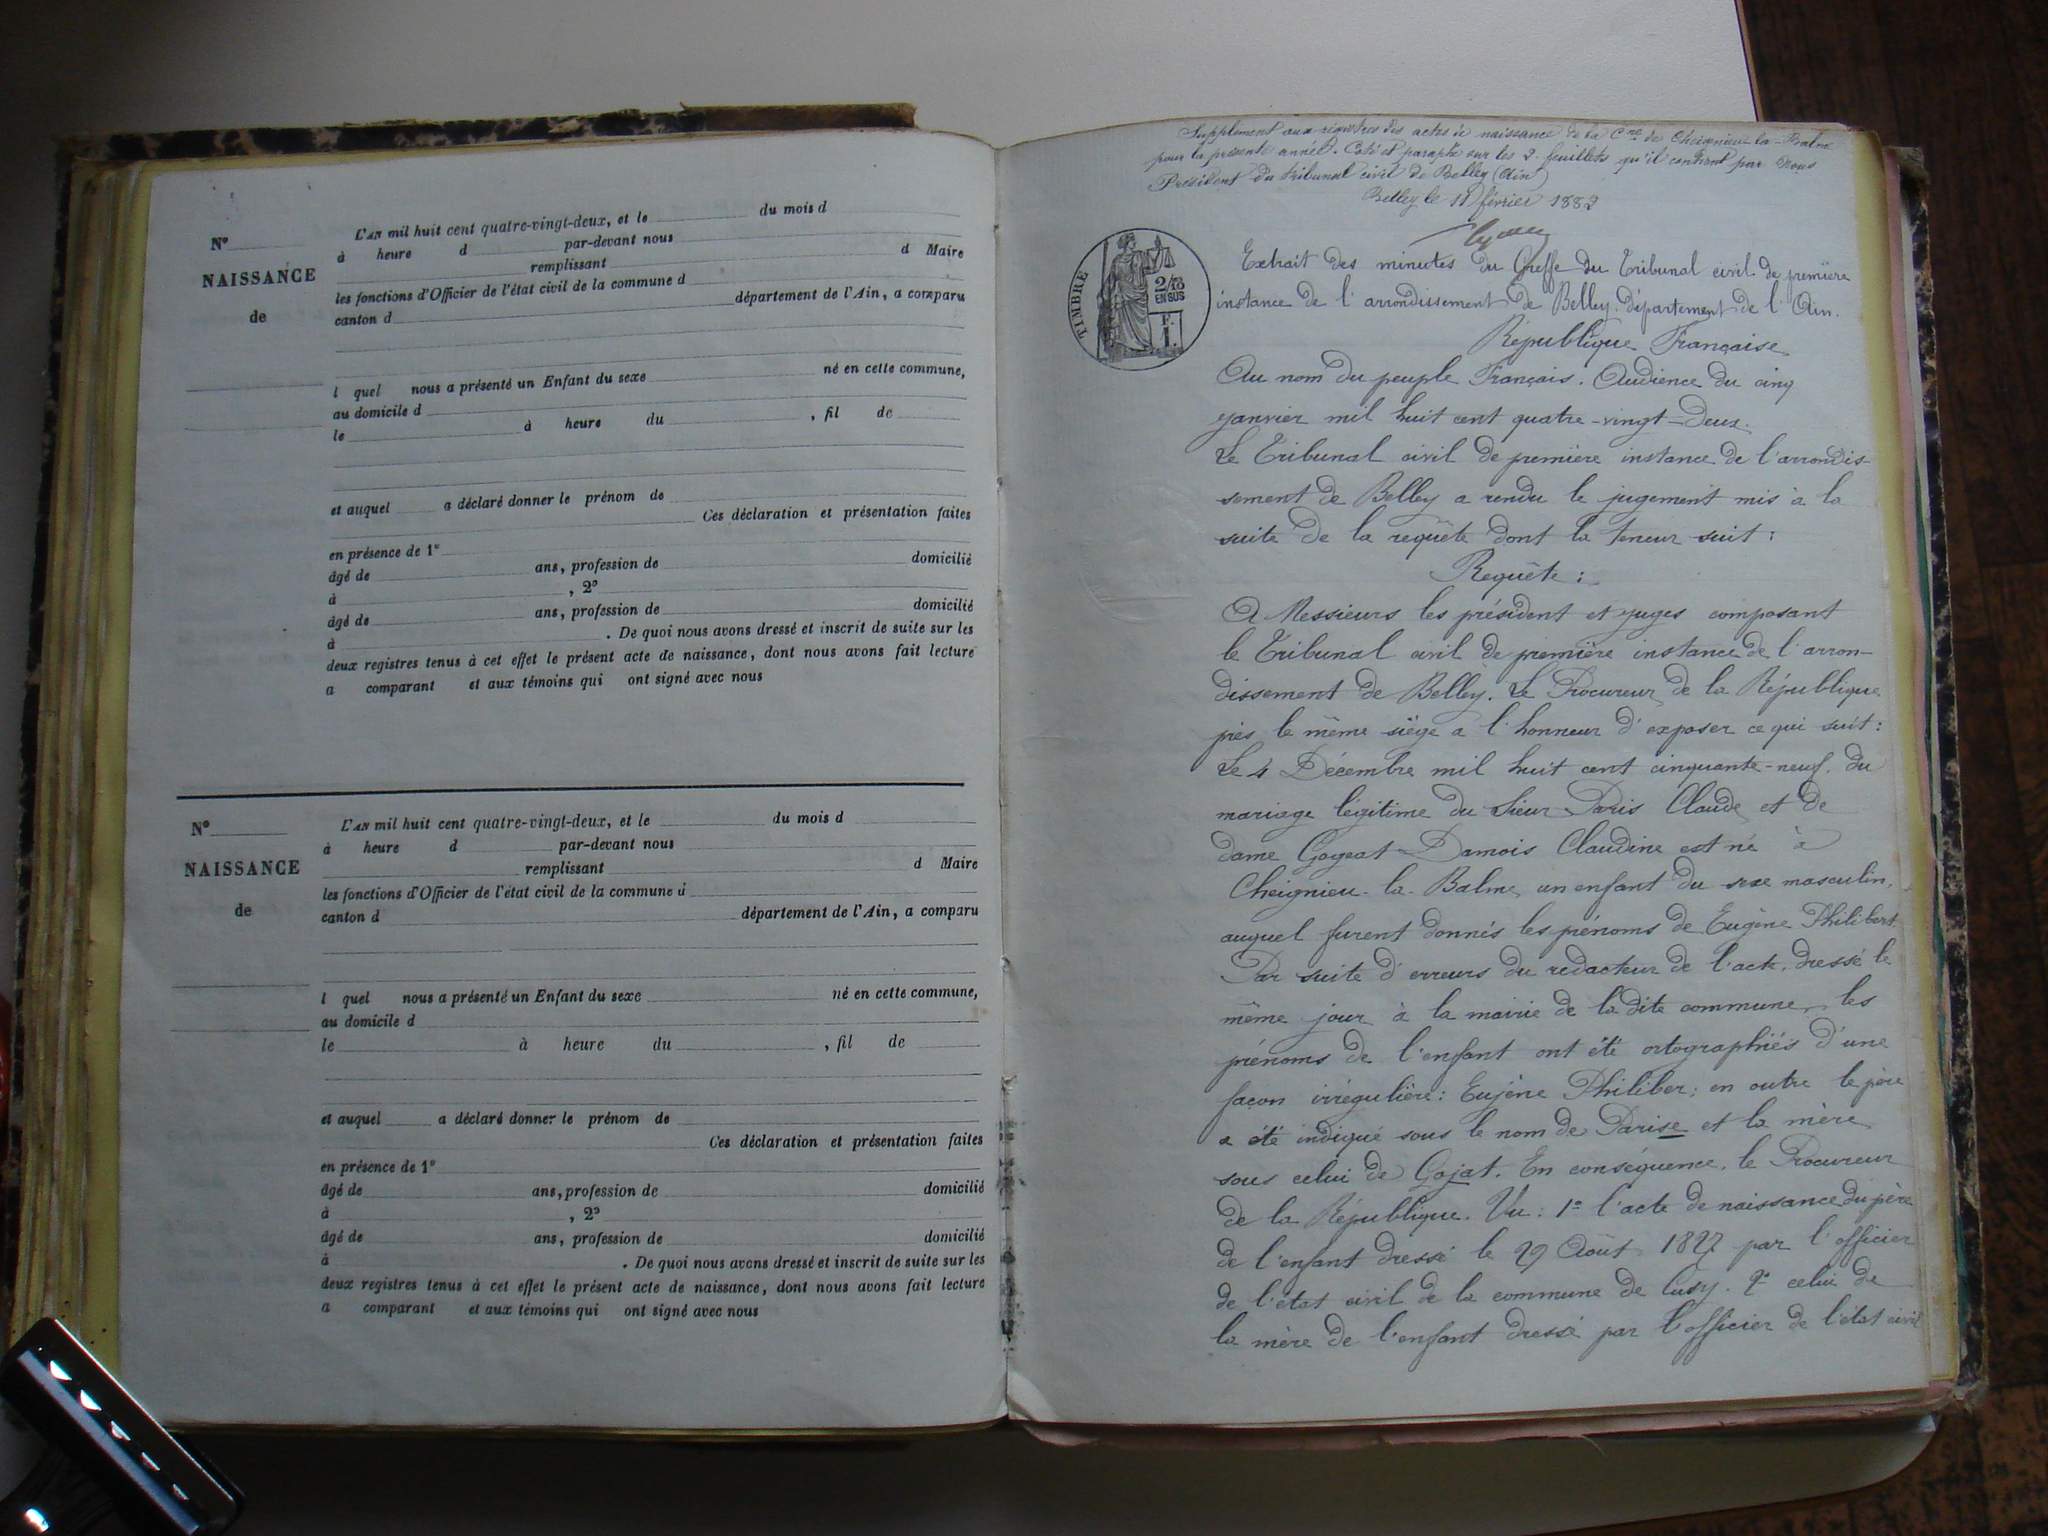 N°
NAISSANCE
de
L'AN mil huit cent quatre-vingt-deux, et le du mois d
à heure d par-devant nous
remplissant d Maire
les fonctions d'Officier de l'état civil de la commune d
canton d département de l'Ain, a comparu
l quel nous a présenté un Enfant du sexe né en cette commune,
au domicile d
le à heure du , fil de
et auquel a déclaré donner le prénom de
Ces déclaration et présentation faites
en présence de 1°
âgé de ans, profession de domicilié
à , 2°
âgé de ans, profession de domicilié
à . De quoi nous avons dressé et inscrit de suite sur les
deux registres tenus à cet effet le présent acte de naissance, dont nous avons fait lecture
a comparant et aux témoins qui ont signé avec nous
N°
NAISSANCE
de
L'AN mil huit cent quatre-vingt-deux, et le du mois d
à heure d par-devant nous
remplissant d Maire
les fonctions d'Officier de l'état civil de la commune d
canton d département de l'Ain, a comparu
l quel nous a présenté un Enfant du sexe né en cette commune,
au domicile d
le à heure du , fil de
et auquel a déclaré donner le prénom de
Ces déclaration et présentation faites
en présence de 1°
âgé de ans, profession de domicilié
à , 2°
âgé de ans, profession de domicilié
à . De quoi nous avons dressé et inscrit de suite sur les
deux registres tenus à cet effet le présent acte de naissance, dont nous avons fait lecture
a comparant et aux témoins qui ont signé avec nous
Supplément aux registres des actes de naissance de la Cne de Cheignieu-la-Balme
pour la présente année. Coté et paraphé sur les 2 feuillets qu'il contient par nous
Président du tribunal civil de Belley (Ain)
Belley le 11 février 1882
TIMBRE
2/10
EN SUS
F.
1.
Extrait des minutes du Greffe du Tribunal civil de première
instance de l'arrondissement de Belley, département de l'Ain.
République Française
Au nom du peuple Français. Audience du cinq
janvier mil huit cent quatre-vingt-deux.
Le Tribunal civil de première instance de l'arrondis-
sement de Belley a rendu le jugement mis à la
suite de la requête dont la teneur suit :
Requête :
A Messieurs les président et juges composant
le Tribunal civil de première instance de l'arron-
dissement de Belley. Le Procureur de la République
près le même siège a l'honneur d'exposer ce qui suit :
Le 4 Décembre mil huit cent cinquante-neuf, du
mariage légitime du sieur Paris Claude et de
dame Gogeat Damois Claudine est né à
Cheignieu-la-Balme un enfant du sexe masculin,
auquel furent donnés les prénoms de Eugène Philibert.
Par suite d'erreurs du rédacteur de l'acte, dressé le
même jour à la mairie de la dite commune, les
prénoms de l'enfant ont été ortographiés d'une
façon irrégulière : Eujène Philiber ; en outre le père
a été indiqué sous le nom de Parise et la mère
sous celui de Gojat. En conséquence, le Procureur
de la République. Vu : 1° l'acte de naissance du père
de l'enfant dressé le 29 Août 1827 par l'officier
de l'état civil de la commune de Cusy. 2° celui de
la mère de l'enfant dressé par l'officier de l'état civil